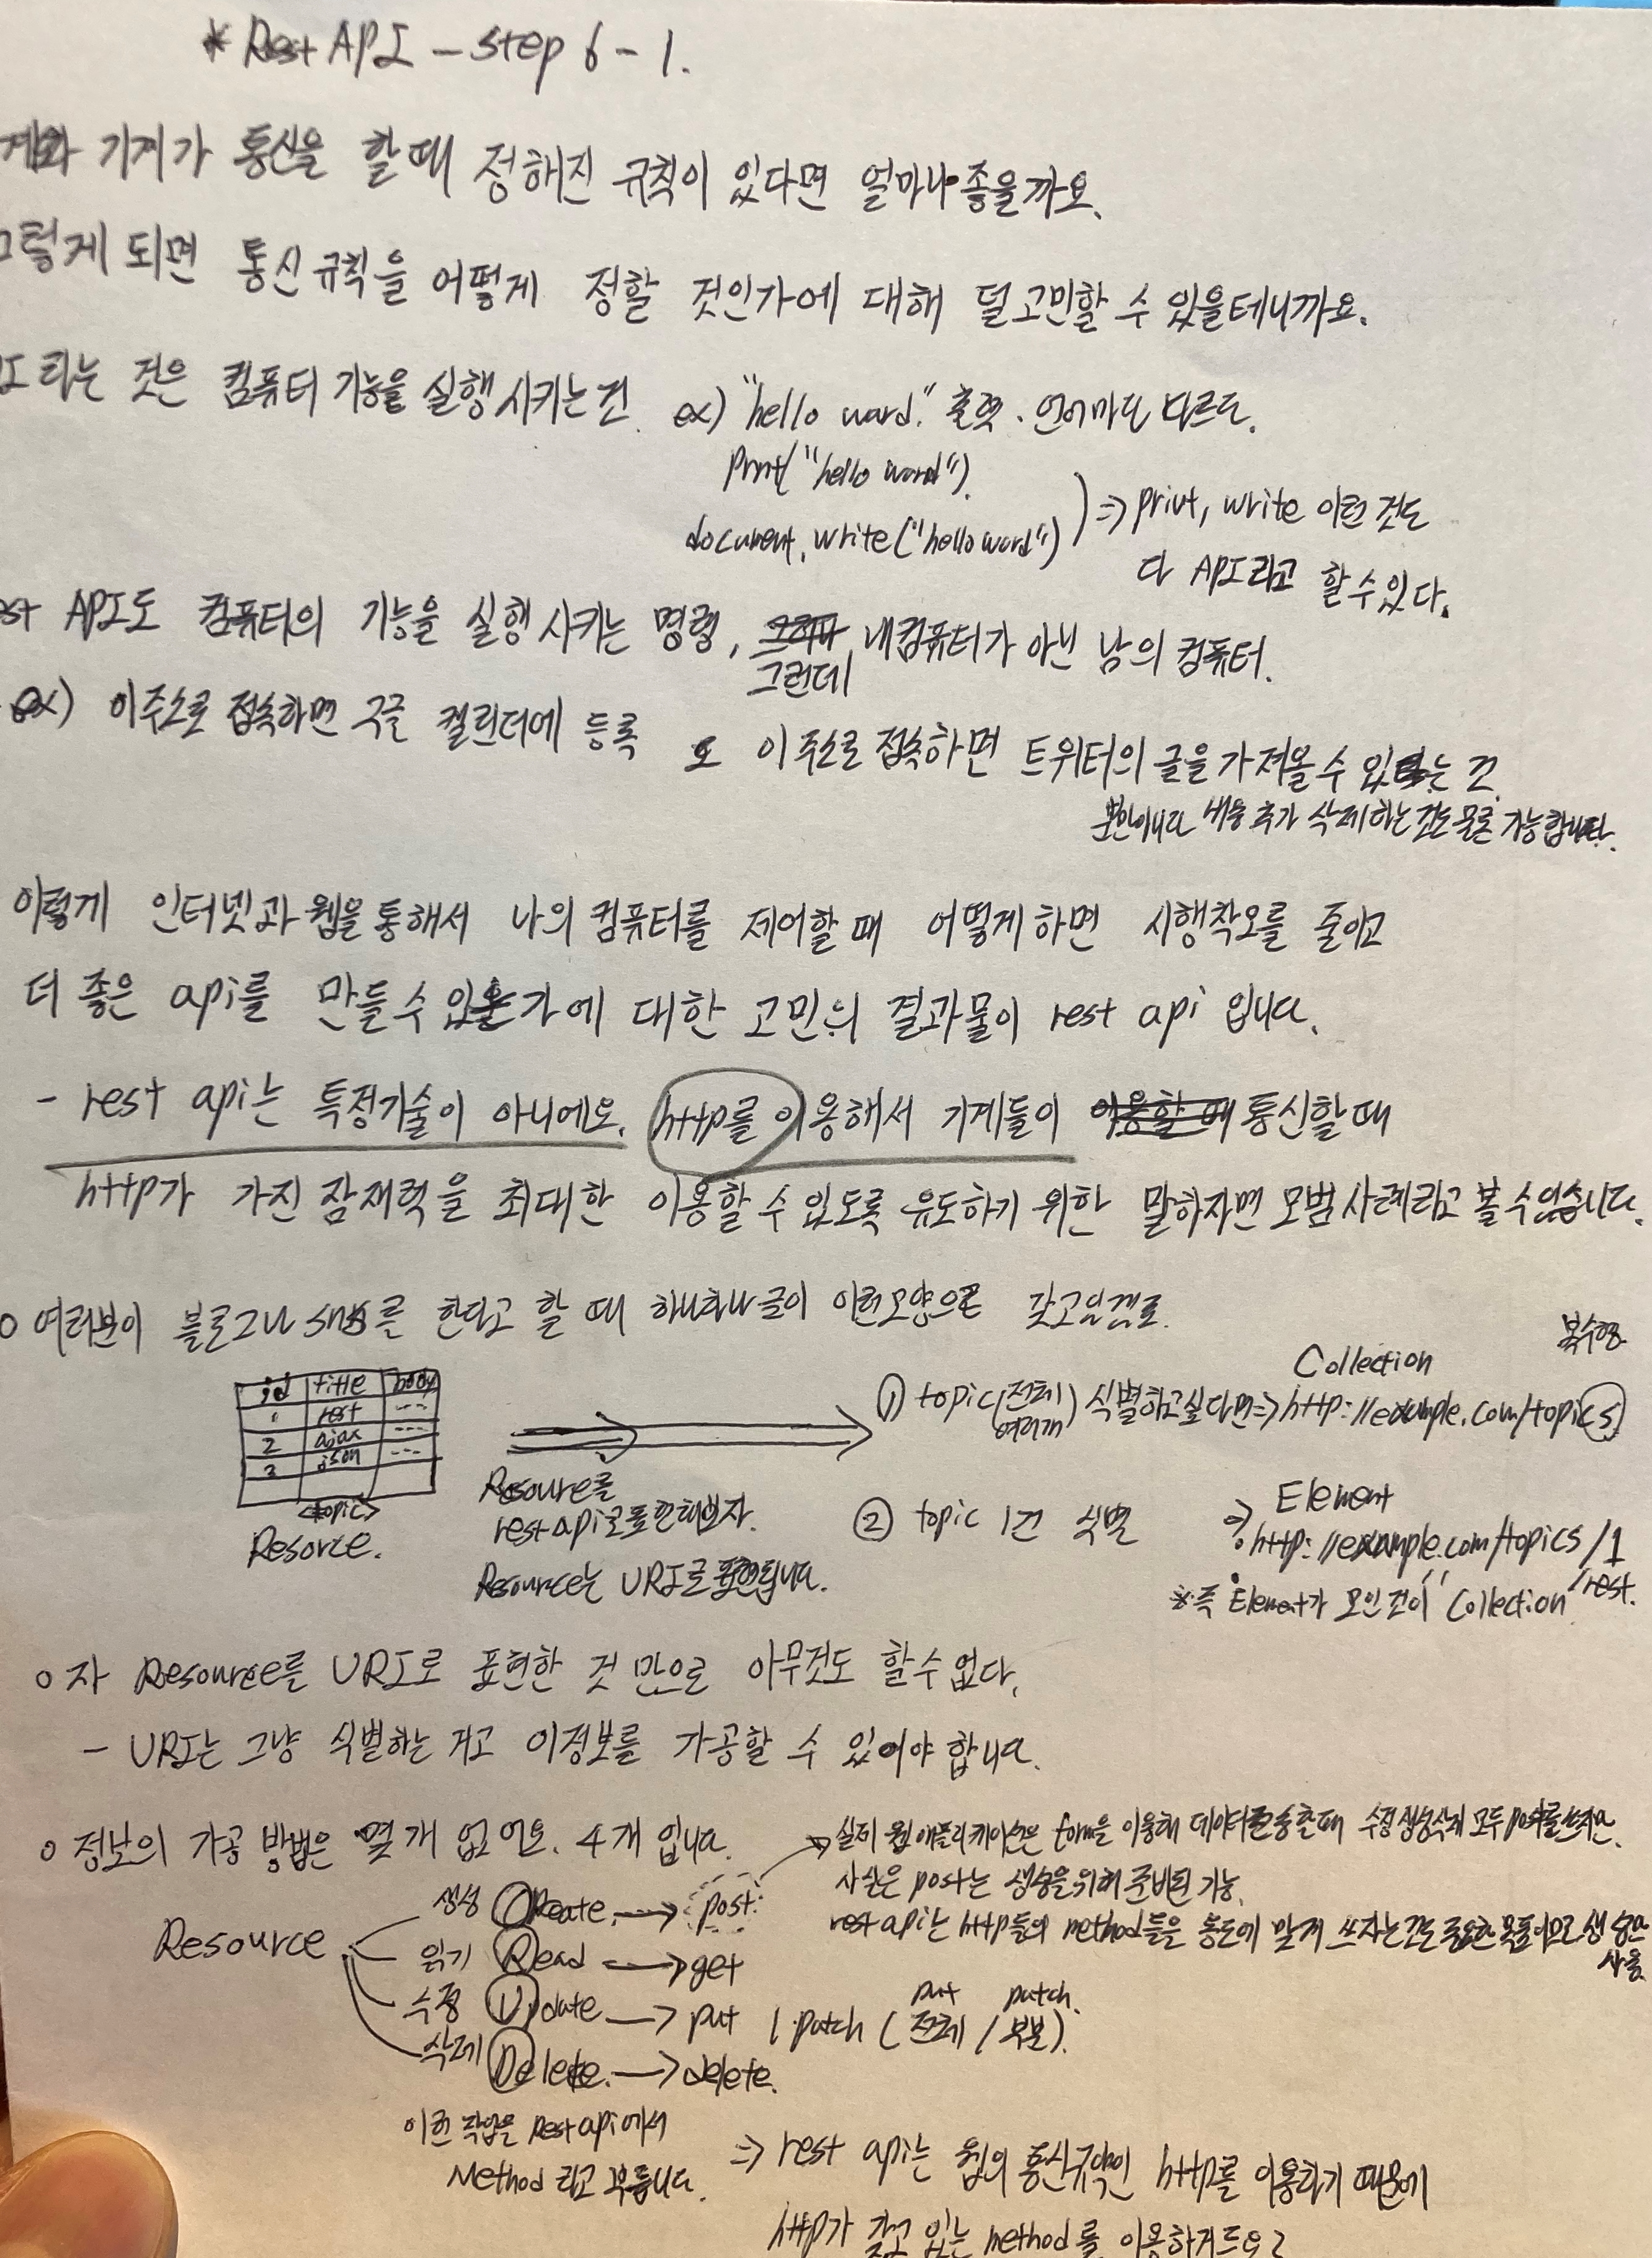 * Rest API - step 6-1.
계와 기계가 통신을 할 때 정해진 규칙이 있다면 얼마나 좋을까요.
그렇게 되면 통신규칙을 어떻게 정할 것인가에 대해 덜 고민할 수 있을테니까요.
라는 것은 컴퓨터 기능을 실행시키는 건. ex) "hello word." 출력. 언어마다 다르다.
print("hello word").
document.write("hello word") ) => print, write 이런 것도
다 API라고 할 수 있다.
API도 컴퓨터의 기능을 실행시키는 명령, 그런데 내컴퓨터가 아닌 남의 컴퓨터.
ex) 이 주소로 접속하면 구글 캘린더에 등록 o 이 주소로 접속하면 트위터의 글을 가져올 수 있는 것.
뿐아니라 내용 추가 삭제하는 것도 물론 가능합니다.
이렇게 인터넷과 웹을 통해서 나의 컴퓨터를 제어할 때 어떻게 하면 시행착오를 줄이고
더 좋은 api를 만들 수 있을가에 대한 고민의 결과물이 rest api 입니다.
- rest api는 특정기술이 아니에요. http를 이용해서 기계들이 통신할 때
http가 가진 잠재력을 최대한 이용할 수 있도록 유도하기 위한 말하자면 모범사례라고 볼 수 있습니다.
o 여러분이 블로그나 sns를 한다고 할 때 하나하나 글이 이런모양으로 갖고있겠죠.
id title body
1 rest ---
2 ajax ---
3 json ---
<topic>
Resorce.
Resource를
rest api로 표현해보자.
Resource는 URI로 표현됩니다.
Collection 복수형
① topic(전체 여러개) 식별하고 싶다면 => http://example.com/topics
Element
② topic 1건 식별 => http://example.com/topics/1
/rest.
※ 즉 Element가 모인 것이 "Collection"
o 자 Resource를 URI로 표현한 것 만으로 아무것도 할 수 없다.
- URI는 그냥 식별하는 거고 이정보를 가공할 수 있어야 합니다.
o 정보의 가공 방법은 몇 개 없어요. 4개 입니다.
-> 실제 웹 애플리케이션은 form을 이용해 데이터를 전송할때 수정 생성 삭제 모두 post를 쓰지만
사실은 post는 생성을 위해 준비된 기능.
rest api는 http들의 method들을 용도에 맞게 쓰자는 것도 중요한 목표이므로 생성만
사용
Resource
생성 Create. --> post.
읽기 Read --> get
수정 Update --> put / patch ( put 전체 / patch. 부분 ).
삭제 Delete. --> delete.
이런 작업을 Rest api에서
Method 라고 부릅니다.
=> rest api는 웹의 통신규약인 http를 이용하기 때문에
http가 갖고 있는 method를 이용하거든요?